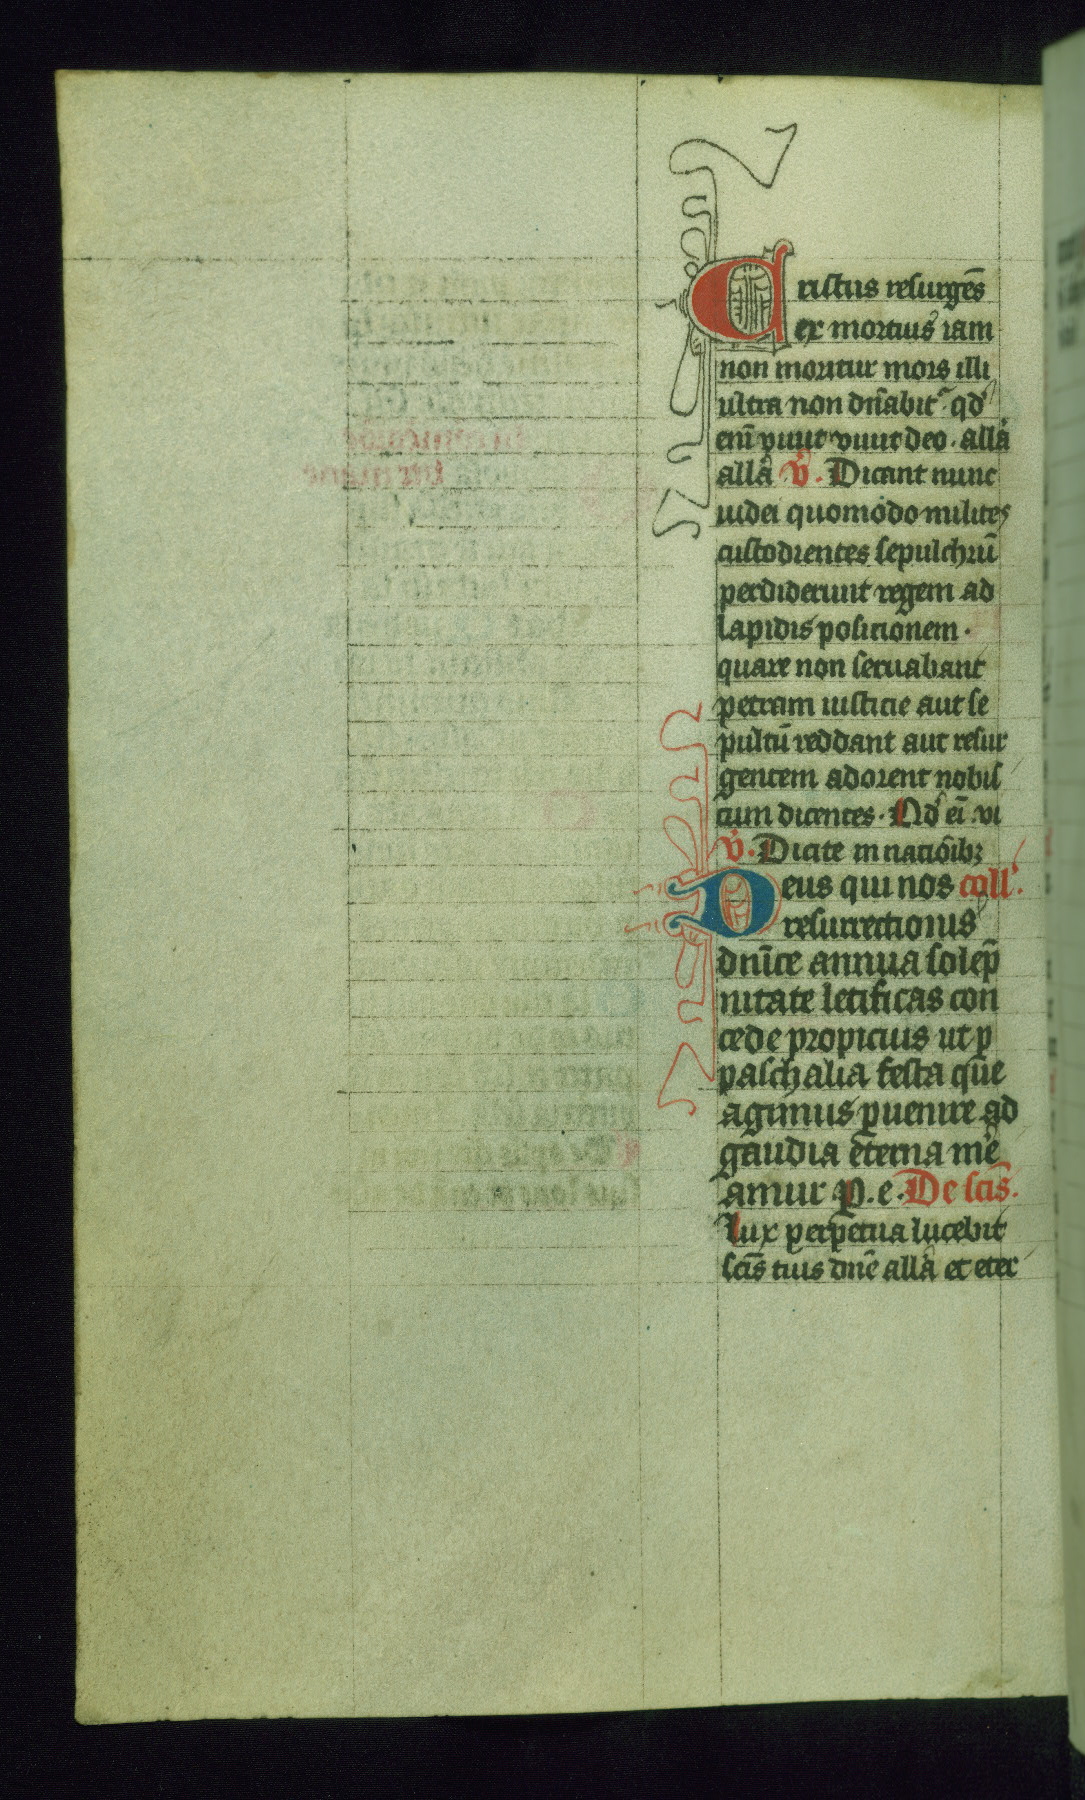 Cristus resurgēs
ex mortuis iam
non moritur mors illi
ultra non dn̄abit' qd'
eni̅ viuit viuit deo · all̄a
all̄a v̄. Dicant nunc
iudei quomodo milites
custodientes sepulchrū
perdiderunt regem ad
lapidis positionem ·
quare non seruabant
petram iusticie aut se
pultū reddant aut resur
gentem adorent nobis
cum dicentes · Qd' ei̅ vi
v̄. Dicite in nationibꝫ
Deus qui nos coll'.
resurrectionis
dn̄ice annua solep̄
nitate letificas con
cede propicius ut p
paschalia festa que
agimus ꝑuenire ad
gaudia eterna me
amur P. e. De sc̄is.
Lux perpetua lucebit
sc̄is tuis dn̄e all̄a et eter